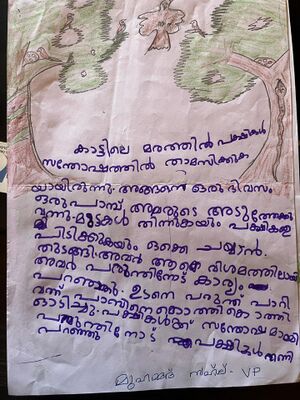 കാട്ടിലെ മരത്തിൽ പക്ഷികൾ
സന്തോഷത്തിൽ താമസിക്കുക
യായിരുന്നു. അങ്ങനെ ഒരു ദിവസം
ഒരു പാമ്പ് അവരുടെ അടുത്തേക്ക്
വന്നു. മുട്ടകൾ തിന്നുകയും പക്ഷികളെ
പിടിക്കുകയും ഒക്കെ ചെയ്യാൻ
തുടങ്ങി. അവർ ആകെ വിശമത്തിലായി
അവർ പരുന്തിനോട് കാര്യം
പറഞ്ഞു. ഉടനെ പറുന്ത് പാറി
വന്ന് പാമ്പിനെ കൊത്തി കൊത്തി
ഓടിച്ചു. പക്ഷികൾക്ക് സന്തോഷമാക്കി
പരുന്തിനോട് പക്ഷികൾ നന്നി
പറഞ്ഞു
മുഹമ്മദ് സഹൽ. VP